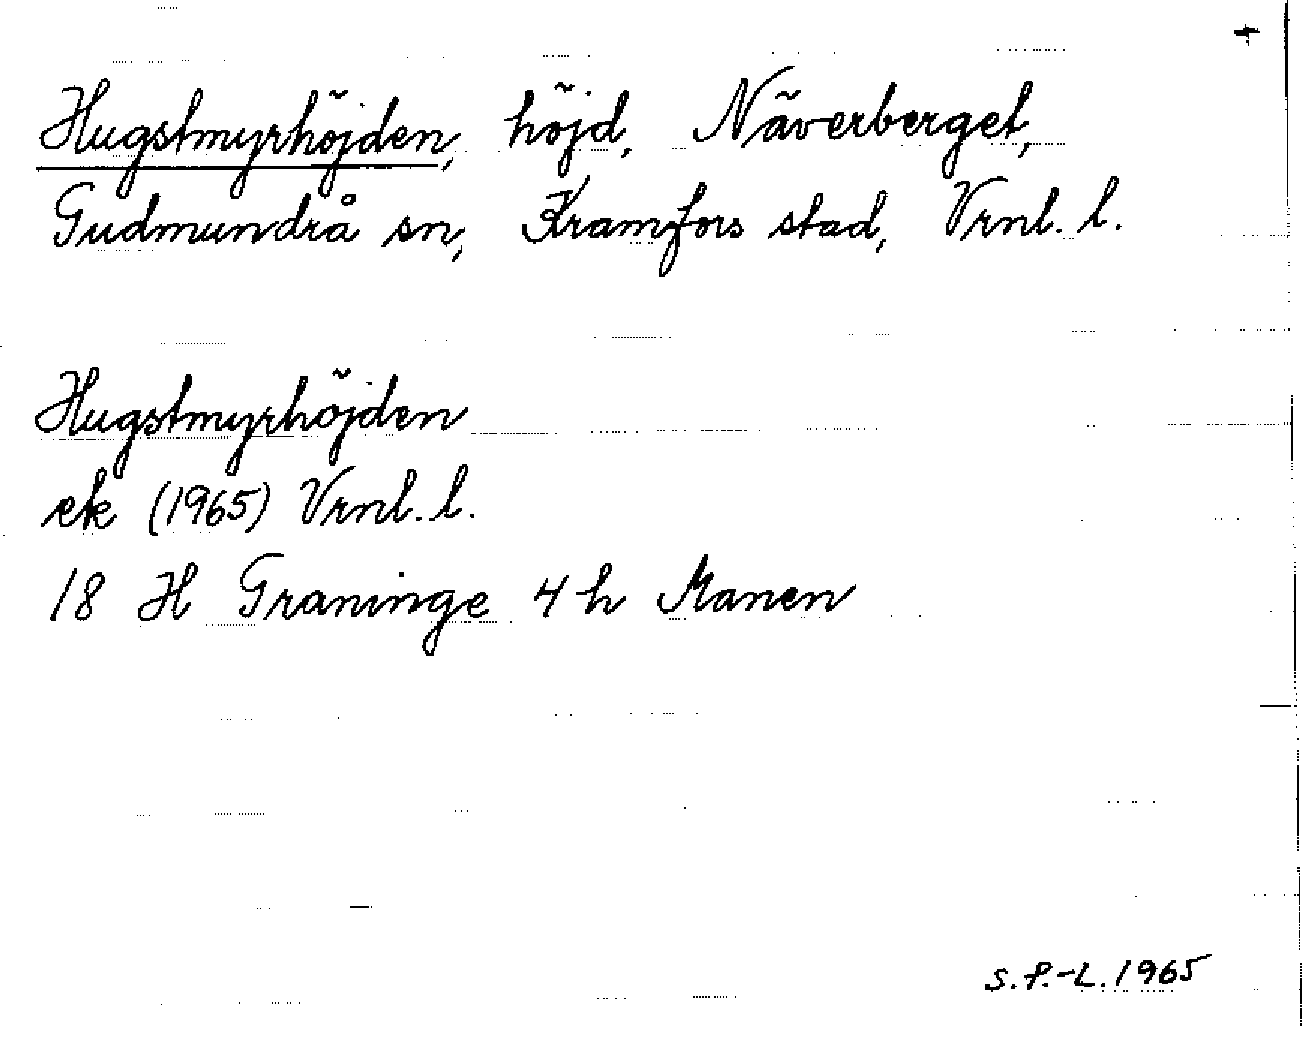 +
Hugstmyrhöjden, höjd, Näverberget,
Gudmundrå sn, Kramfors stad, Vrnl. l.
Hugstmyrhöjden
ek (1965) Vrnl. l.
18 H Graninge 4 h Manen
S.P.-L. 1965